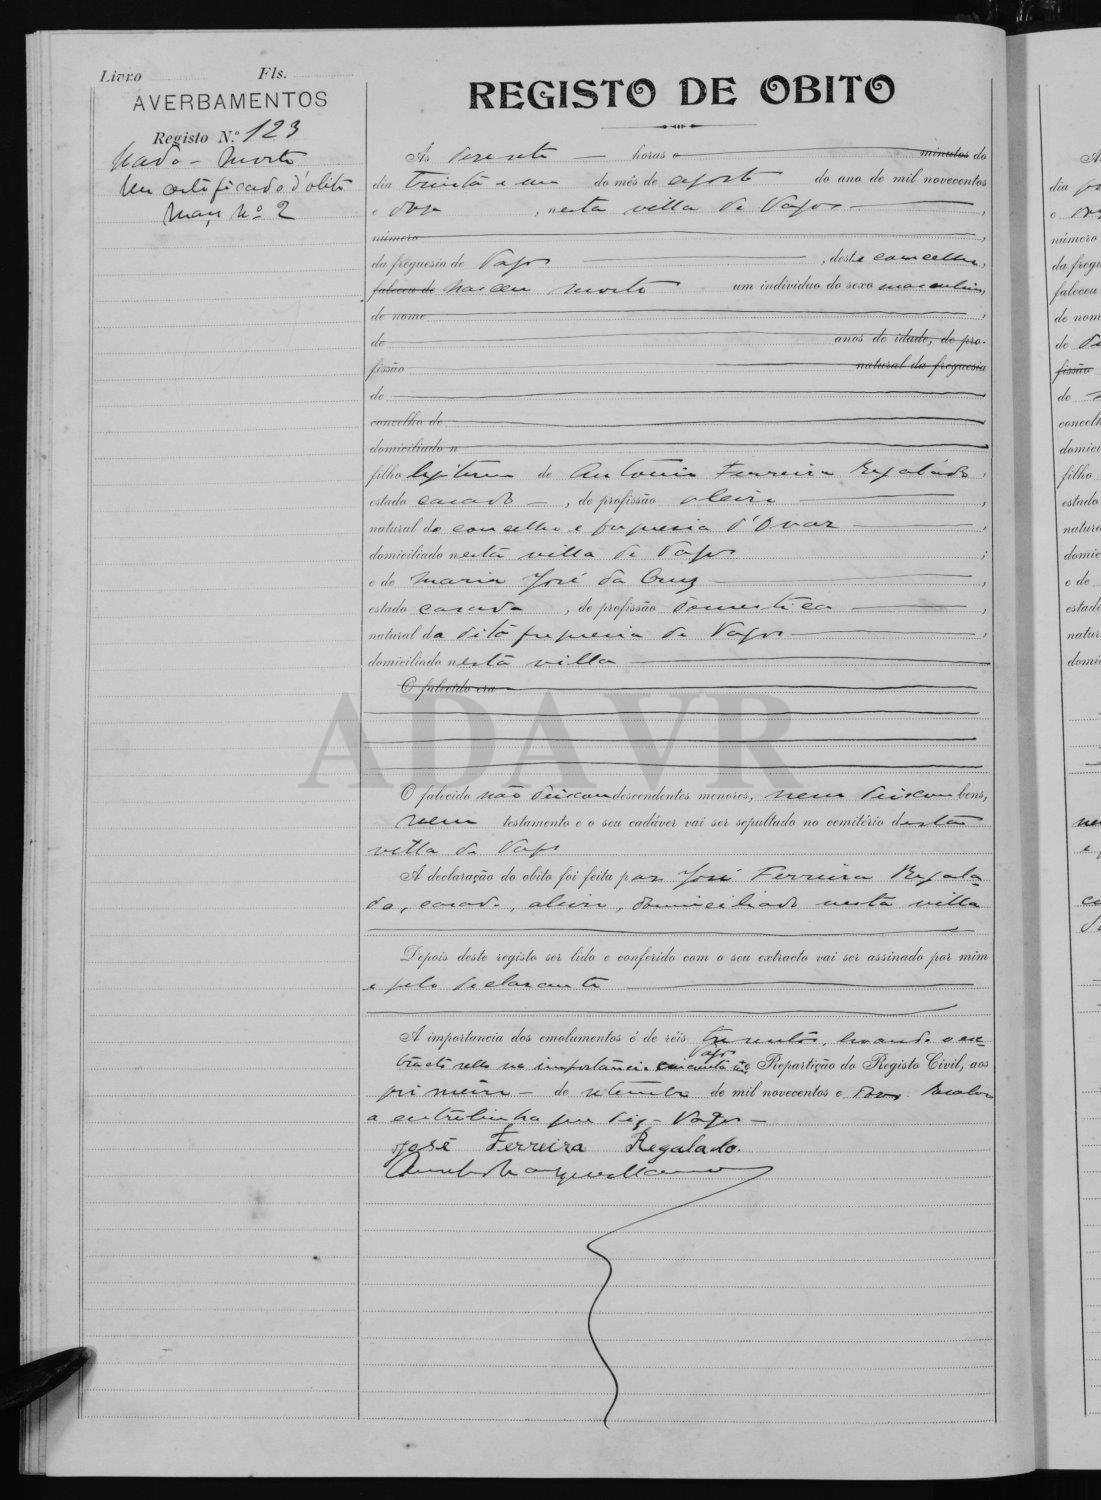 Livro Fls.
AVERBAMENTOS
Registo N.º 123
Nado - Morto
Um certificado d'obito
Maç Nº 2
REGISTO DE OBITO
Ás dezesete horas e minutos do
dia trinta e um do mês de agosto do ano de mil novecentos
e doze, nesta villa de Vagos,
número,
da freguesia de Vagos, deste concelho,
faleceu de nasceu morto um individuo do sexo masculino,
de nome,
de anos de idade, de pro-
fissão natural da freguesia
de
concelho de
domiciliado n
filho legitimo de António Ferreira Regalado,
estado casado, de profissão oleiro,
natural do concelho e freguesia d'Ovar,
domiciliado nesta villa de Vagos;
e de Maria José da Cruz,
estado casada, de profissão domestica,
natural da dita freguesia de Vagos,
domiciliado nesta villa
O falecido era
ADAVR
O falecido não deixou descendentes menores, nem deixou bens,
nem testamento e o seu cadáver vai ser sepultado no cemitério desta
villa de Vagos
A declaração do obito foi feita por José Ferreira Regala-
do, casado, oleiro, domiciliado nesta villa
Depois deste registo ser lido e conferido com o seu extracto vai ser assinado por mim
e pelo declarante
A importancia dos emolumentos é de réis trezentos, levando o ex-
Vagos
tracto sello na importância cincoenta réis Repartição do Registo Civil, aos
primeiro de setembro de mil novecentos e doze. Resalvo
a entrelinha que diz - Vagos -
José Ferreira Regalado.